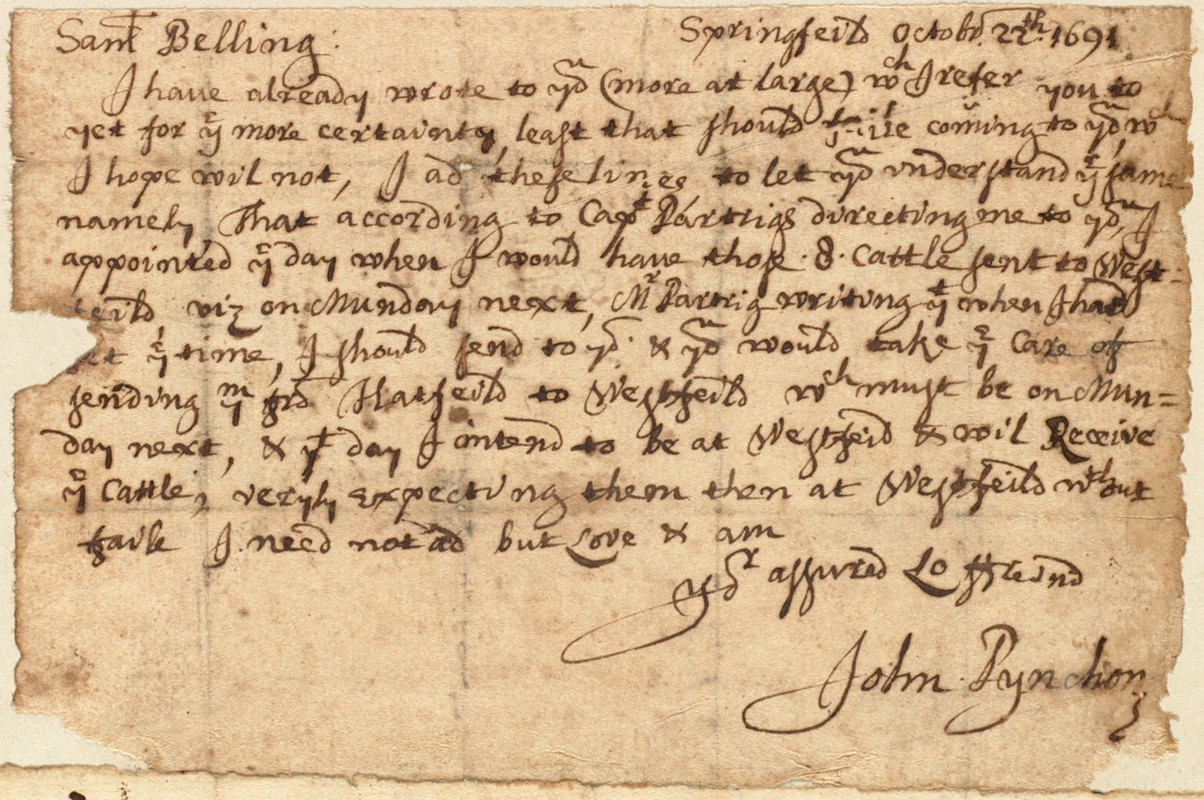 Saml Belling: Springfeild Octobr. 22th. 1691
I have already wrote to yo (more at large) wch I refer you to
yet for ye more certainty, least that should faile coming to yo, wch
I hope wil not, I ad these lines to let yo understand ye same
namely, That according to Capt Partrigs directing me to yo, I
appointed ye day when I would have those .8. Cattle sent to West-
feild, viz on Munday next, Mr Partrig writing yt when I had
set ye time, I should send to yo. & yo would take ye Care of
sending ym frō Hatfeild to Westfeild wch must be on Mun=
day next, & yt day I intend to be at Westfeild & wil Receive
ye Cattle, veryly Expecting them then at Westfeild wthout
faile I need not ad but Love & am
yor assured Lo ffreind
John Pynchon